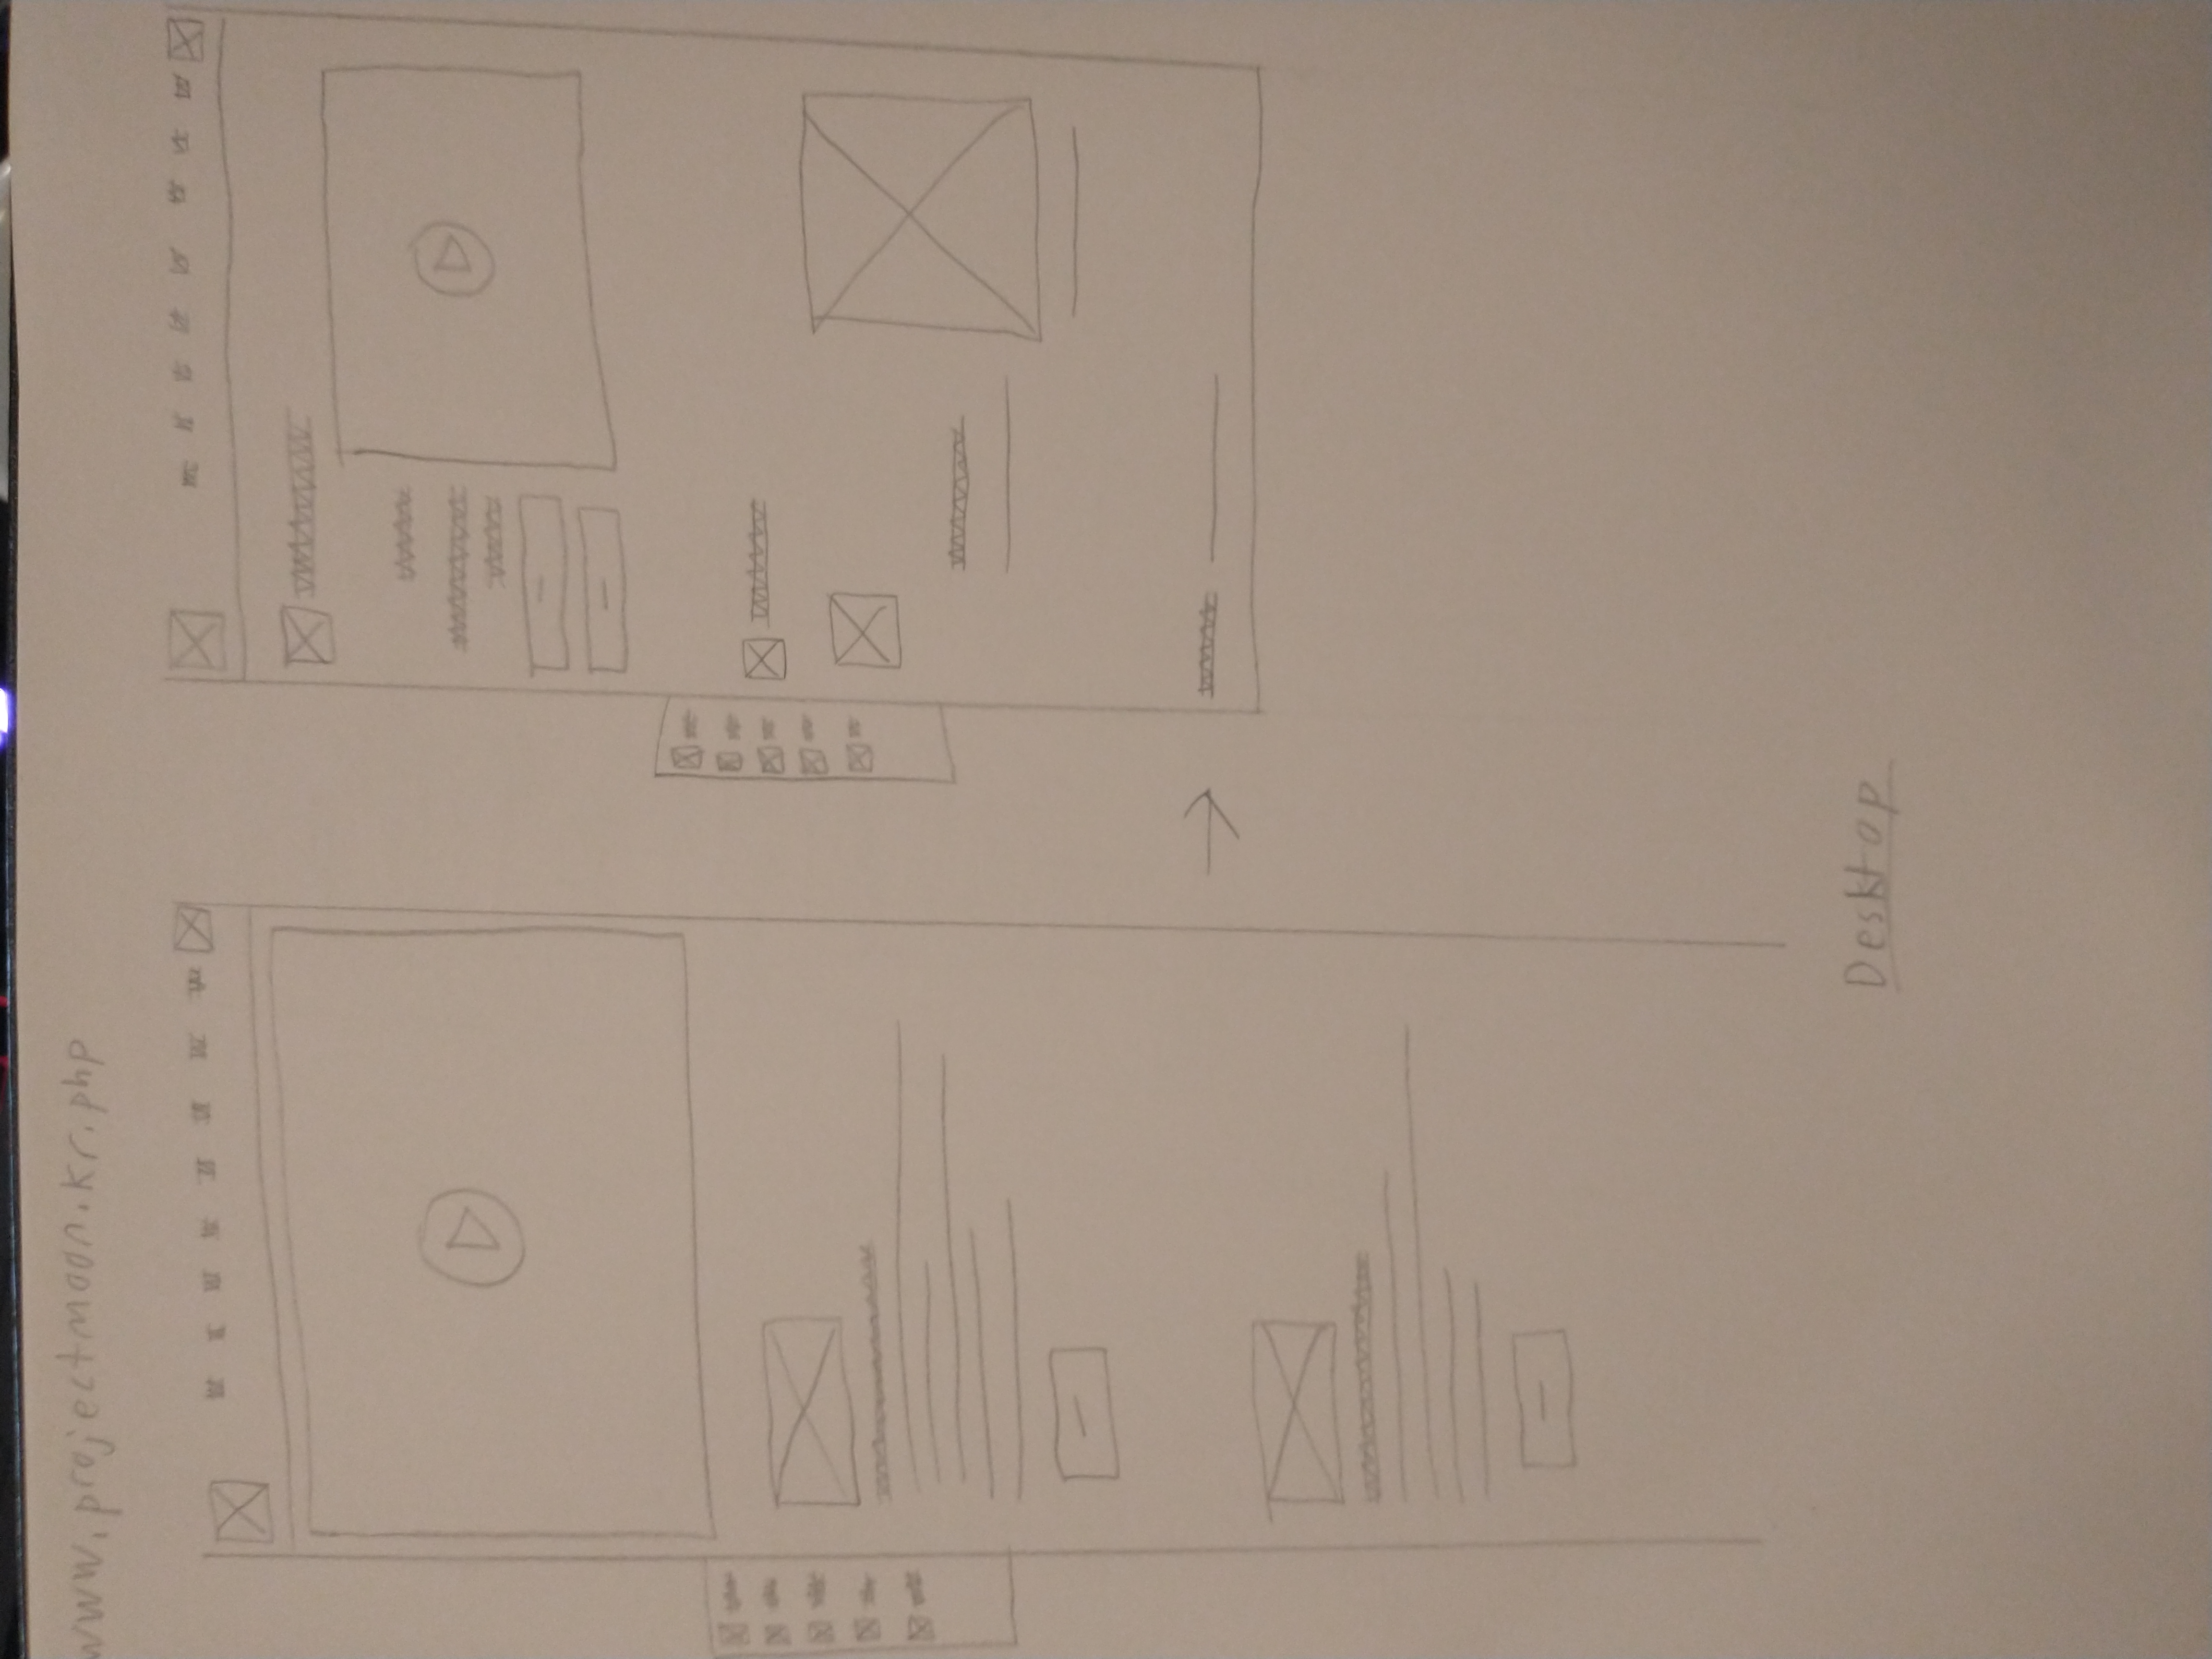 www.projectmoon.kr.php
Desktop